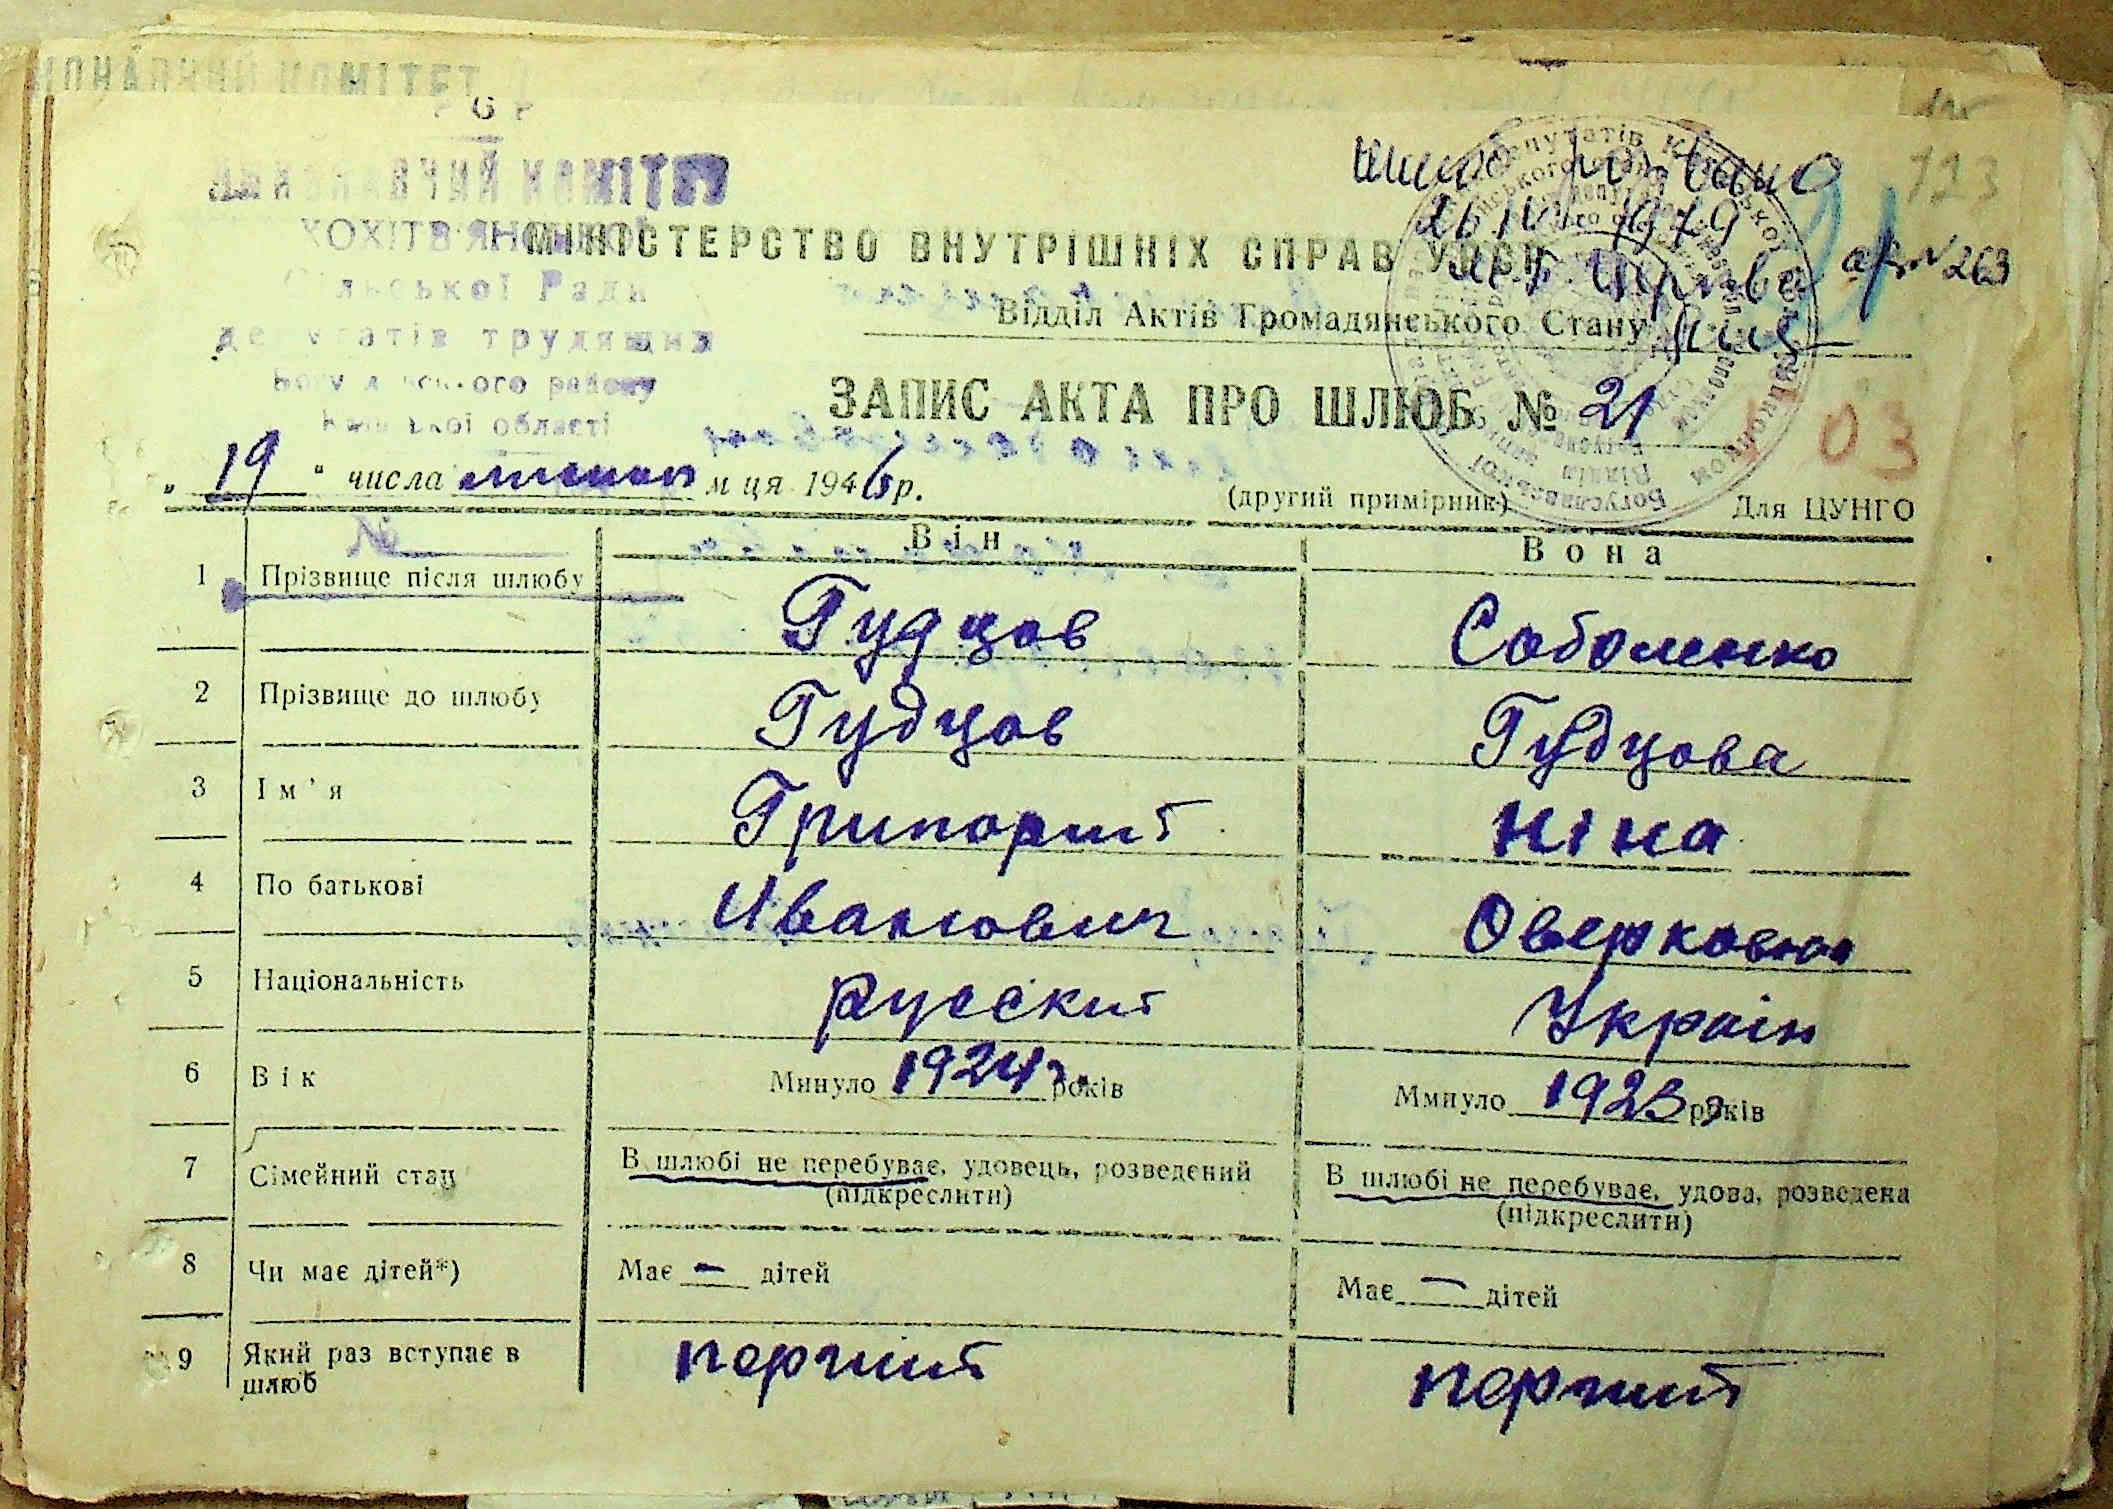 КОМІТЕТ
ВИКОНАВЧИЙ КОМІТЕТ
ХОХІТВ'ЯНСЬКОЇ
Сільської Ради
депутатів трудящих
Богуславського району
Київської області
26 1979
а/з № 263
123
МІНІСТЕРСТВО ВНУТРІШНІХ СПРАВ УРСР
Відділ Актів Громадянського Стану
ЗАПИС АКТА ПРО ШЛЮБ № 21
03
„ 19 “ числа листопад м ця 1946 р.
(другий примірник)
Для ЦУНГО
№
Він Вона
1 Прізвище після шлюбу Гудцов Соболенко
2 Прізвище до шлюбу Гудцов Гудцова
3 Ім'я Григорий Ніна
4 По батькові Иванович Оверковна
5 Національність русский Україн
6 Вік Минуло 1924 г. років Ммнуло 1923 р років
7 Сімейний стан В шлюбі не перебуває, удовець, розведений В шлюбі не перебуває, удова, розведена
(підкреслити) (підкреслити)
8 Чи має дітей*) Має — дітей Має — дітей
9 Який раз вступає в перший перший
шлюб